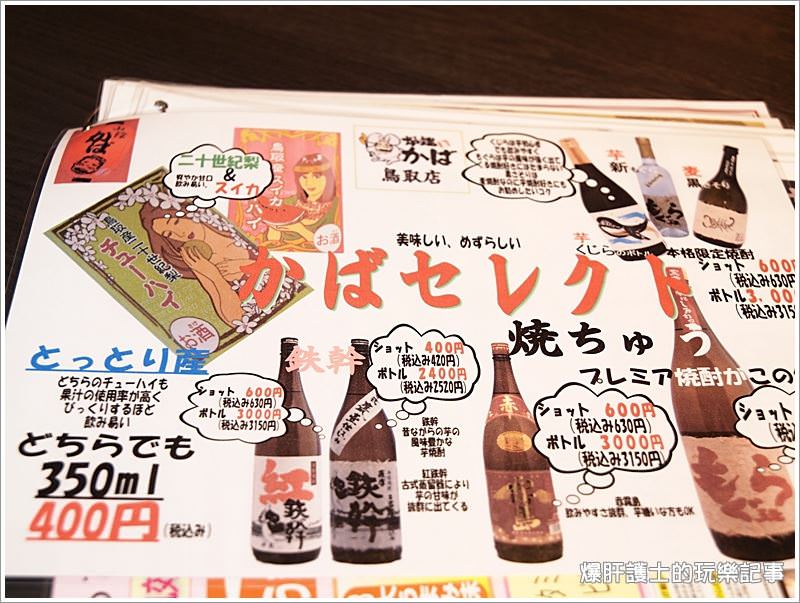 山陰
かば
二十世紀梨
&
スイカ
爽やか甘口
飲み易い。
鳥取産スイカ
チューハイ
お酒
鳥取産二十世紀梨
チューハイ
お酒
炉端
かば
鳥取店
芋
新
麦
黒
芋
くじらのボトル
本格限定焼酎
ショット 600円
(税込み630円
ボトル3.000
(税込み315
美味しい、めずらしい
かばセレクト
焼ちゅう
プレミア焼酎がこの
とっとり産
どちらのチューハイも
果汁の使用率が高く
びっくりするほど
飲み易い
どちらでも
350ml
400円(税込み)
鉄幹
ショット 600円
(税込み630円
ボトル 3000円
(税込み3150円
ショット 400円
(税込み420円)
ボトル 2400円
(税込み2520円
紅
鉄幹
鉄幹
鉄幹
昔ながらの芋の
風味豊かな
芋焼酎
紅鉄幹
古式蒸留器により
芋の甘味が
抜群に出てくる
赤
ショット 600円
(税込み630円
ボトル 3000円
(税込み3150円
赤霧島
飲みやすさ抜群、芋嫌いな方もOK
ショット
(税込
もぐら
爆肝護士的玩樂記事